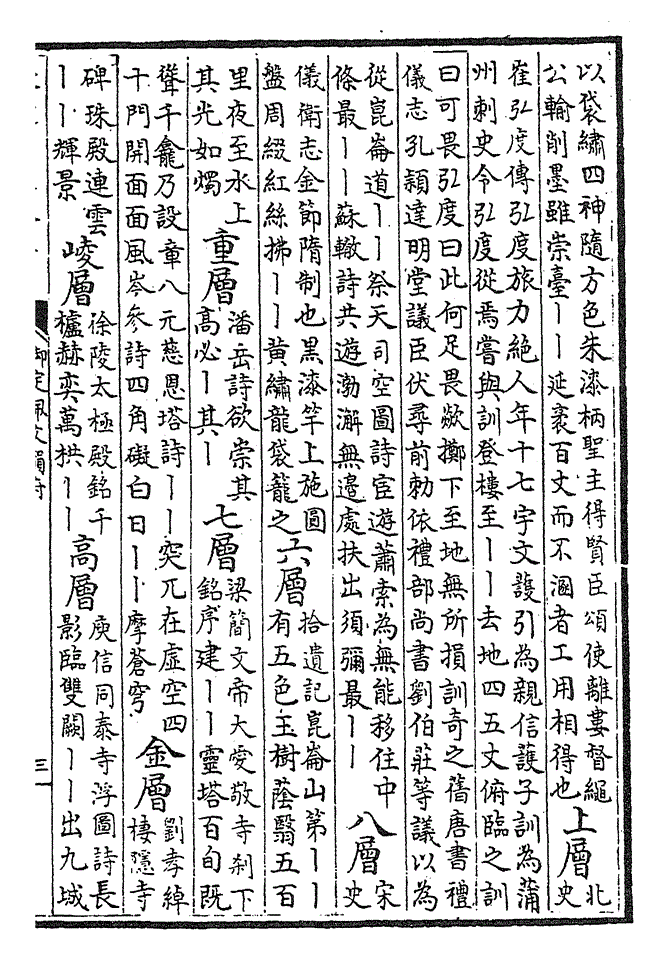 以袋繡四神隨方色朱漆柄聖主得賢臣頌使離婁督繩
公輸削墨雖崇臺丨丨延袤百丈而不溷者工用相得也
上層
北
史
崔弘度傳弘度旅力絕人年十七宇文護引為親信護子訓為蒲
州刺史令弘度從焉嘗與訓登樓至丨丨去地四五丈俯臨之訓
曰可畏弘度曰此何足畏欻擲下至地無所損訓奇之舊唐書禮
儀志孔穎達明堂議臣伏尋前勅依禮部尚書劉伯莊等議以為
從崑崙道丨丨祭天司空圖詩宦遊蕭索為無能移住中
條最丨丨蘇轍詩共遊渤澥無邊處扶出須彌最丨丨
八層
宋
史
儀衛志金節隋制也黑漆竿上施圓
盤周綴紅絲拂丨丨黄繡龍袋籠之
六層
拾遺記崑崙山第丨丨
有五色玉樹蔭翳五百
里夜至水上
其光如燭
重層
潘岳詩欲崇其
高必丨其丨
七層
梁簡文帝大愛敬寺刹下
銘序建丨丨靈塔百旬既
聳千龕乃設章八元慈恩塔詩丨丨突兀在虛空四
十門開面面風岑參詩四角礙白日丨丨摩蒼穹
金層
劉孝綽
棲隱寺
碑珠殿連雲
丨丨輝景
崚層
徐陵太極殿銘千
櫨赫奕萬栱丨丨
高層
庾信同泰寺浮圖詩長
影臨雙闕丨丨出九城
御定佩文韻府
三